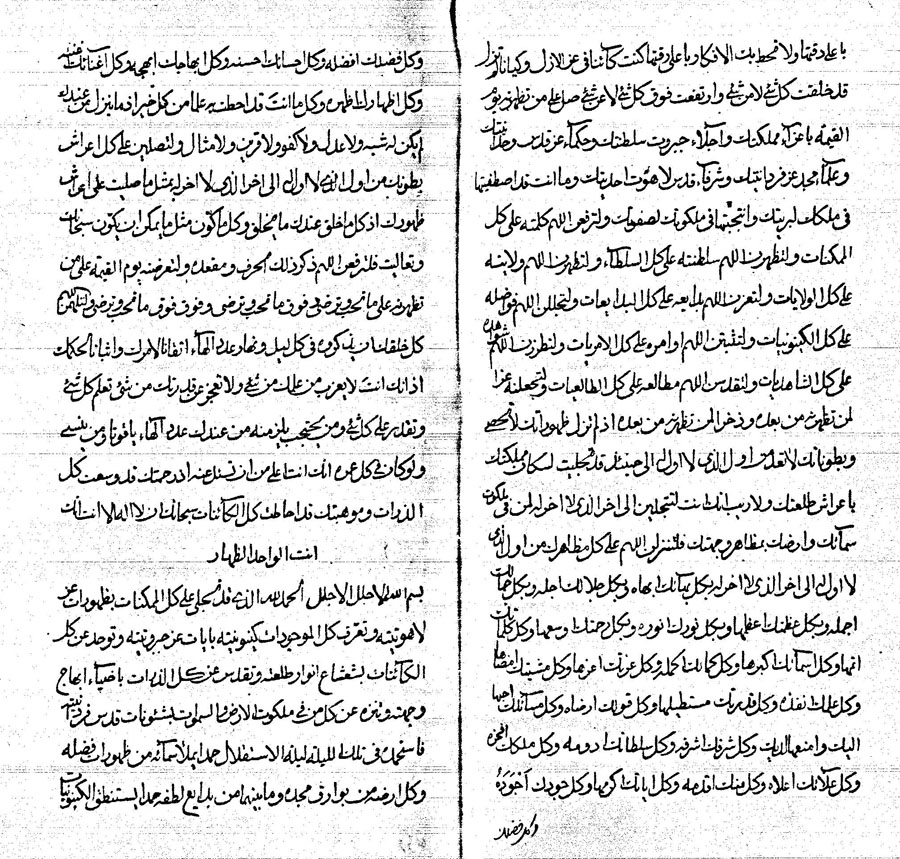 باعلى دقتها ولا تحط بك الافكار وباعلى دقتها كنت كائنا في عز الازل وكيانا لم تزل
قد خلقت كل شئ لا من شئ وارتفعت فوق كل شئ لا عن شئ صل على من تظهره يوم
القيمة باعزاء مملكتك واجلاء جبروت سلطنتك وحكماء عز قدس وحدانيتك
وعلماء مجد عز فردانيتك وشرفاء قدس لاهوت احديتك وما انت قد اصطفيتها
في ملكك لبريتك وانتجبتها في ملكوتك لصفوتك ولترفعن اللهم كلمته على كل
الممكنات ولتظهرن اللهم سلطنته على كل السلطاء ولتظهرن اللهم ولايته
على كل الولايات ولتعززن اللهم بدايعه على كل البدايعات ولتجللن اللهم فواضله
على كل الكينونيات ولتثبتن اللهم اوامره على كل الامريات ولتطرزن اللهم شواهده
على كل الشاهديات ولتقدسن اللهم مطالعه على كل الطالعيات ولتجعلنه عزا
لمن تظهرنه من بعده وذخرا لمن تظهرنه من بعده اذ لم تزل ظهوراتك لا تحصى
وبطوناتك لا تعد من اول الذي لا اول له الى حينئذ قد تجليت لسكان مملكتك
باعراش طلعتك ولا ريب انك انت لتتجلين الى اخر الذي لا اخر له لمن في ملكوت
سمائك وارضك بمظاهر وجهتك فلتنزلن اللهم على كل مظاهرك من اول الذي
لا اول له الى اخر الذي لا اخر له بكل بهائك ابهاه وبكل جلالك اجله وبكل جمالك
اجمله وبكل عظمتك اعظمها وبكل نورك انوره وبكل رحمتك وسعها وبكل كلماتك
اتمها وكل اسمائك اكبرها وكل كمالك اكمله وكل عزتك اعزها وكل مشيتك امضاها
وكل علمك انفذه وكل قدرتك مستطيلها وكل قولك ارضاه وكل مسائلك احبها
اليك وامنعها لديك وكل شرفك اشرفه وكل سلطانك ادومه وكل ملكك افخره
وكل علائك اعلاه وكل منك اقدمه وكل اياتك اكرمها وكل جودك اجوده
وكل فضلك
وكل فضلك افضله وكل احسانك احسنه وكل ابهاجك ابهجه وكل اغنائك
وكل اظهارك اظهره وكل ما انت قد احطت به علما من كل خير اذ ما ينزل من عندك
لم يكن له شبه ولا عدل ولا كفو ولا قرين ولا مثال ولتصلين على كل اعراش
بطونك من اول الذي لا اول له الى اخر الذي لا اخر له بمثل ما صليت على اعراش
ظهورك اذ كل ما خلق عندك ما يخلق وكل ما كون مثل ما يمكن ان يكون سبحانك
وتعاليت فلترفعن اللهم ذكر ذلك الحرف ومقعده ولتعرضنه يوم القيمة على من
تظهرنه على ما تحب وترضى وفوق ما تحب وترضى وفوق فوق ما تحب وترضى ولتلهمن اللهم
كل خلقك ان يذكروه في كل ليل ونهار عدد الهاء اتقانا لامرك واثباتا لحكمك
اذ انك انت لا يعزب من علمك من شئ ولا تعجز عن قدرتك من شئ تعلم كل شئ
وتقدر على كل شئ ومن يحتجب يلزمنه من عندك عدد الهاء ياقوتا ومن ينسى
ولو كان في كل عمره انك انت اعلى من ان تسئل عنه اذ رحمتك قد وسعت كل
الذرات وموهبتك قد احاطت كل الكائنات سبحانك ان لا اله الا انت انك
انت الواحد الظهار
بسم الله الاجلل الاجلل الحمد لله الذي قد تجلى على كل الممكنات بظهورات عز
لاهوتيته وتعرف كل الموجودات كينونيته بايات عز جبروتيته وتوحد عن كل
الكائنات بشعشاع انوار طلعته وتقدس عن كل الذرات باضياء ابهاج
وجهته وتنزه عن كل من في ملكوت الارض والسموات بشئونات قدس فردانيته
فاستحمده في تلك الليلة ليلة الاستقلال حمدا يملأ سمائه من ظهورات افضله
وكل ارضه من بوارق مجده وما بينهما من بدايع لطفه حمدا يستنطق الكينونيات